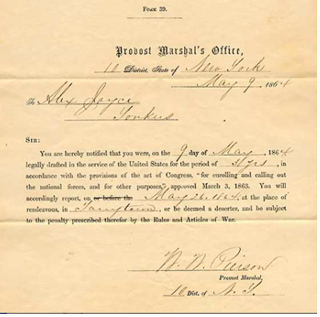 FORM 39.
Provost Marshal's Office,
10 District, State of New York
May 9, 1864
To Alex Joyce
Yonkers
SIR:
You are hereby notified that you were, on the 9 day of May 1864
legally drafted in the service of the United States for the period of 3 yrs, in
accordance with the provisions of the act of Congress, "for enrolling and calling out
the national forces, and for other purposes," approved March 3, 1863. You will
accordingly report, on or before the May 26, 1864, at the place of
rendezvous, in Tarrytown, or be deemed a deserter, and be subject
to the penalty prescribed therefor by the Rules and Articles of War.
W. W. Pierson
Provost Marshal,
10 Dist. of N.Y.